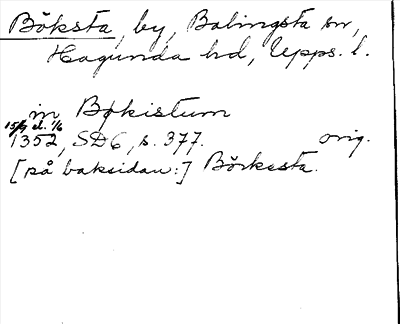 Böksta, by, Balingsta sn,
Hagunda hd, Upps. l.
in Bøkistum
15/5 el. 1/6
1352, SD6, s. 377. orig.
[på baksidan:] Börkesta.